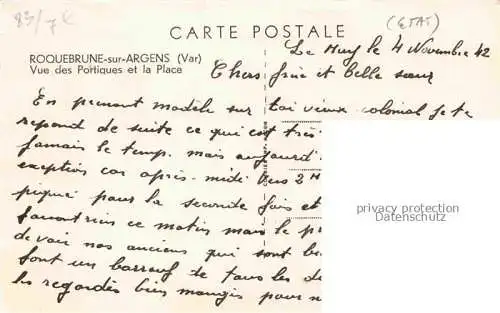 83/7€
(ETAT)
CARTE POSTALE
ROQUEBRUNE-sur-ARGENS (Var)
Vue des Portiques et la Place
Le Muy le 4 Novembre 42
Chers frère et belle sœur
En prenant modèle sur toi vieux colonial je te
repond de suite ce qui est très
jamais le temps. mais aujourd'
exception car après-midi vers 2 H
piqué pour la seconde fois et
ce matin mais le p
devoir nos anciens qui sont be
font un barrouf de tous les d
les regardes bien manger pour n
privacy protection
Datenschutz